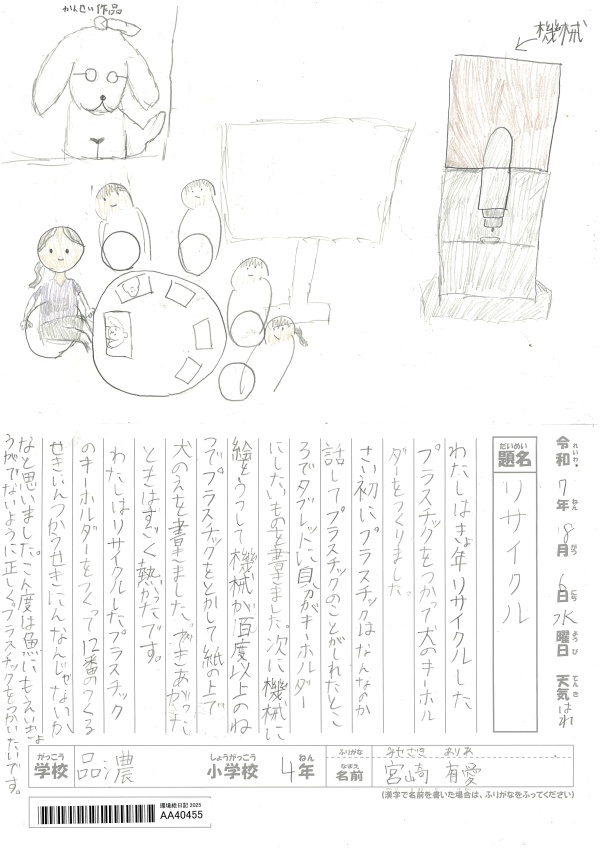 かんせい作品
機械
令和7年8月6日水曜日 天気はれ
れいわ ねん がつ にち ようび てんき
だいめい
題名 リサイクル
わたしはきょ年リサイクルした
プラスチックをつかって犬のキーホル
ダーをつくりました。
さい初にプラスチックはなんなのか
話してプラスチックのことがしれたとこ
ろでタブレットに自分がキーホルダー
にしたいものを書きました。次に機械に
絵をうつして機械が百度以上のね
つでプラスチックをとかして紙の上で
犬のえを書きました。できあがった
ともはすごく熱かたです。
わたしはリサイクルしたプラスチック
のキーホルダーをつくって12番のつくる
せきにんつかうせきにんなんじゃないか
なと思いました。こん度は魚にもえいきょ
うがでないように正しくプラスチックをつかいたいです。
がっこう しょうがっこう ねん
学校 品濃 小学校 4年
ふりがな みやざき ありあ
なまえ
名前 宮崎 有愛
(漢字で名前を書いた場合は、ふりがなをふってください)
環境絵日記 2025
AA40455